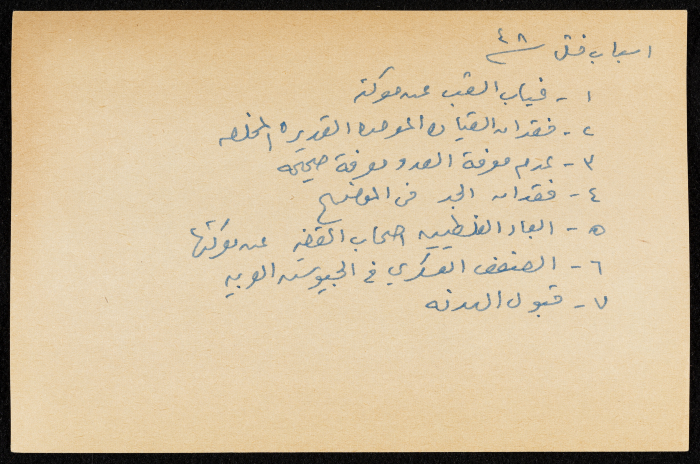 اسباب فشل ٤٨
١ - غياب الشعب عن معركته
٢ - فقدان القياده الموحده القديره المخلصه
٣ - عدم معرفة العدو معرفة صحيحه
٤ - فقدان الجد في الموضوع
٥ - ابعاد الفلسطينيين اصحاب القضيه عن معركتها
٦ - الضعف العسكري في الجيوش العربيه
٧ - قبول الهدنه